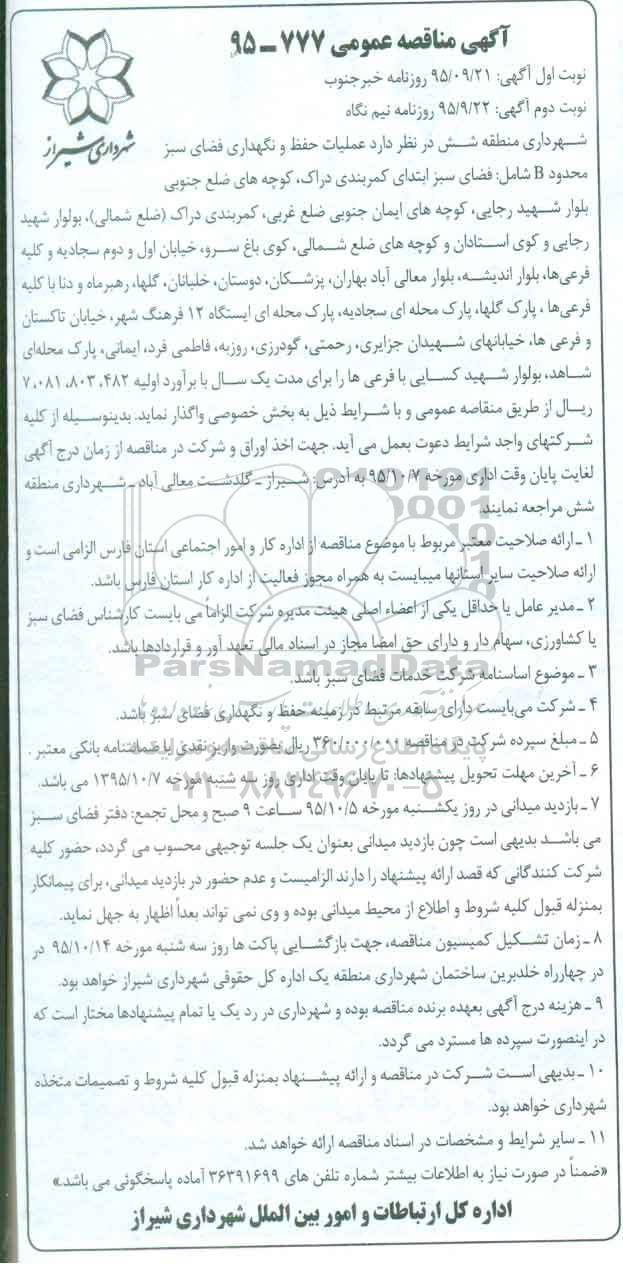 آگهی مناقصه عمومی ۷۷۷ ـ ۹۵
نوبت اول آگهی: ۹۵/۰۹/۲۱ روزنامه خبرجنوب
نوبت دوم آگهی: ۹۵/۹/۲۲ روزنامه نیم نگاه
شهرداری شیراز
شهرداری منطقه شش در نظر دارد عملیات حفظ و نگهداری فضای سبز
محدود B شامل: فضای سبز ابتدای کمربندی دراک، کوچه های ضلع جنوبی
بلوار شهید رجایی، کوچه های ایمان جنوبی ضلع غربی، کمربندی دراک (ضلع شمالی)، بولوار شهید
رجایی و کوی استادان و کوچه های ضلع شمالی، کوی باغ سرو، خیابان اول و دوم سجادیه و کلیه
فرعی‌ها، بلوار اندیشه، بلوار معالی آباد بهاران، پزشکان، دوستان، خلبانان، گلها، رهبرماه و دنا با کلیه
فرعی‌ها ، پارک گلها، پارک محله ای سجادیه، پارک محله ای ایستگاه ۱۲ فرهنگ شهر، خیابان تاکستان
و فرعی ها، خیابانهای شهیدان جزایری، رحمتی، گودرزی، روزبه، فاطمی فرد، ایمانی، پارک محله‌ای
شاهد، بولوار شهید کسایی با فرعی ها را برای مدت یک سال با برآورد اولیه ۷،۰۸۱،۸۰۳،۴۸۲
ریال از طریق منقاصه عمومی و با شرایط ذیل به بخش خصوصی واگذار نماید. بدینوسیله از کلیه
شرکتهای واجد شرایط دعوت بعمل می آید. جهت اخذ اوراق و شرکت در مناقصه از زمان درج آگهی
لغایت پایان وقت اداری مورخه ۹۵/۱۰/۷ به آدرس: شیراز ـ گلدشت معالی آباد ـ شهرداری منطقه
شش مراجعه نمایند.
۱ ـ ارائه صلاحیت معتبر مربوط با موضوع مناقصه از اداره کار و امور اجتماعی استان فارس الزامی است و
ارائه صلاحیت سایر استانها میبایست به همراه مجوز فعالیت از اداره کار استان فارس باشد.
۲ ـ مدیر عامل یا حداقل یکی از اعضاء اصلی هیئت مدیره شرکت الزاماً می بایست کارشناس فضای سبز
یا کشاورزی، سهام دار و دارای حق امضا مجاز در اسناد مالی تعهد آور و قراردادها باشد.
ParsNamadData
۳ ـ موضوع اساسنامه شرکت خدمات فضای سبز باشد.
۴ ـ شرکت می‌بایست دارای سابقه مرتبط در زمینه حفظ و نگهداری فضای سبز باشد.
۵ ـ مبلغ سپرده شرکت در مناقصه ۳۶۰/۰۰۰/۰۰۰ ریال بصورت واریز نقدی یا ضمانتنامه بانکی معتبر .
۶ ـ آخرین مهلت تحویل پیشنهادها: تا پایان وقت اداری روز سه شنبه مورخه ۱۳۹۵/۱۰/۷ می باشد.
۰۲۱-۸۸۳۴۹۶۷۰-۵
۷ ـ بازدید میدانی در روز یکشنبه مورخه ۹۵/۱۰/۵ ساعت ۹ صبح و محل تجمع: دفتر فضای سبز
می باشد بدیهی است چون بازدید میدانی بعنوان یک جلسه توجیهی محسوب می گردد، حضور کلیه
شرکت کنندگانی که قصد ارائه پیشنهاد را دارند الزامیست و عدم حضور در بازدید میدانی، برای پیمانکار
بمنزله قبول کلیه شروط و اطلاع از محیط میدانی بوده و وی نمی تواند بعداً اظهار به جهل نماید.
۸ ـ زمان تشکیل کمیسیون مناقصه، جهت بازگشایی پاکت ها روز سه شنبه مورخه ۹۵/۱۰/۱۴ در
در چهارراه خلدبرین ساختمان شهرداری منطقه یک اداره کل حقوقی شهرداری شیراز خواهد بود.
۹ ـ هزینه درج آگهی بعهده برنده مناقصه بوده و شهرداری در رد یک یا تمام پیشنهادها مختار است که
در اینصورت سپرده ها مسترد می گردد.
۱۰ ـ بدیهی است شرکت در مناقصه و ارائه پیشنهاد بمنزله قبول کلیه شروط و تصمیمات متخذه
شهرداری خواهد بود.
۱۱ ـ سایر شرایط و مشخصات در اسناد مناقصه ارائه خواهد شد.
«ضمناً در صورت نیاز به اطلاعات بیشتر شماره تلفن های ۳۶۳۹۱۶۹۹ آماده پاسخگوئی می باشد»
اداره کل ارتباطات و امور بین الملل شهرداری شیراز